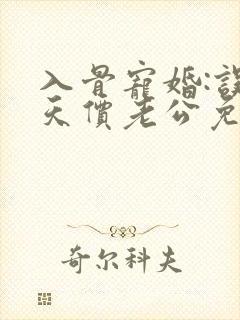 入骨寵婚:誤
天價老公免
奇尔科夫